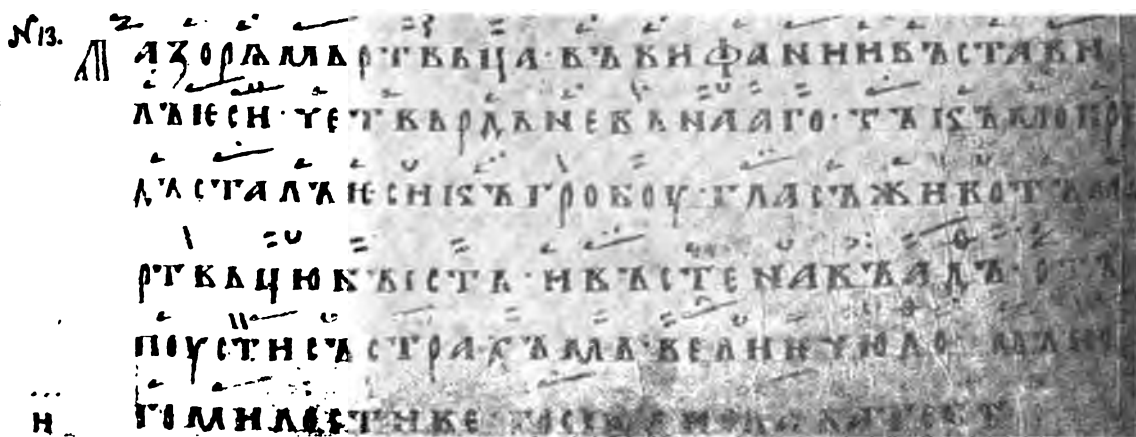 N13.
Л АЗОРѦ МЬРТВЬЦА · ВЪ ВИФАНИИ ВЪСТАВИ
ЛЪ ѤСИ · ЧЕТВЬРДЬНЕВЬНААГО · ТЪ ІЅЪМО ПРѢ
ДЪСТАЛЪ ѤСИ ІЅЪ ГРОБОУ · ГЛАСЪ ЖИВОТЪ МЬ
РТВЬЦЮ БЪІСТЬ · И ВЪСТЕНАВЪ АДЪ · ОТЪ
ПОУСТИ СЪ СТРАХЪМЬ · ВЕЛИИ ЧЮДО
И ГОМИЛОСТИВЕ